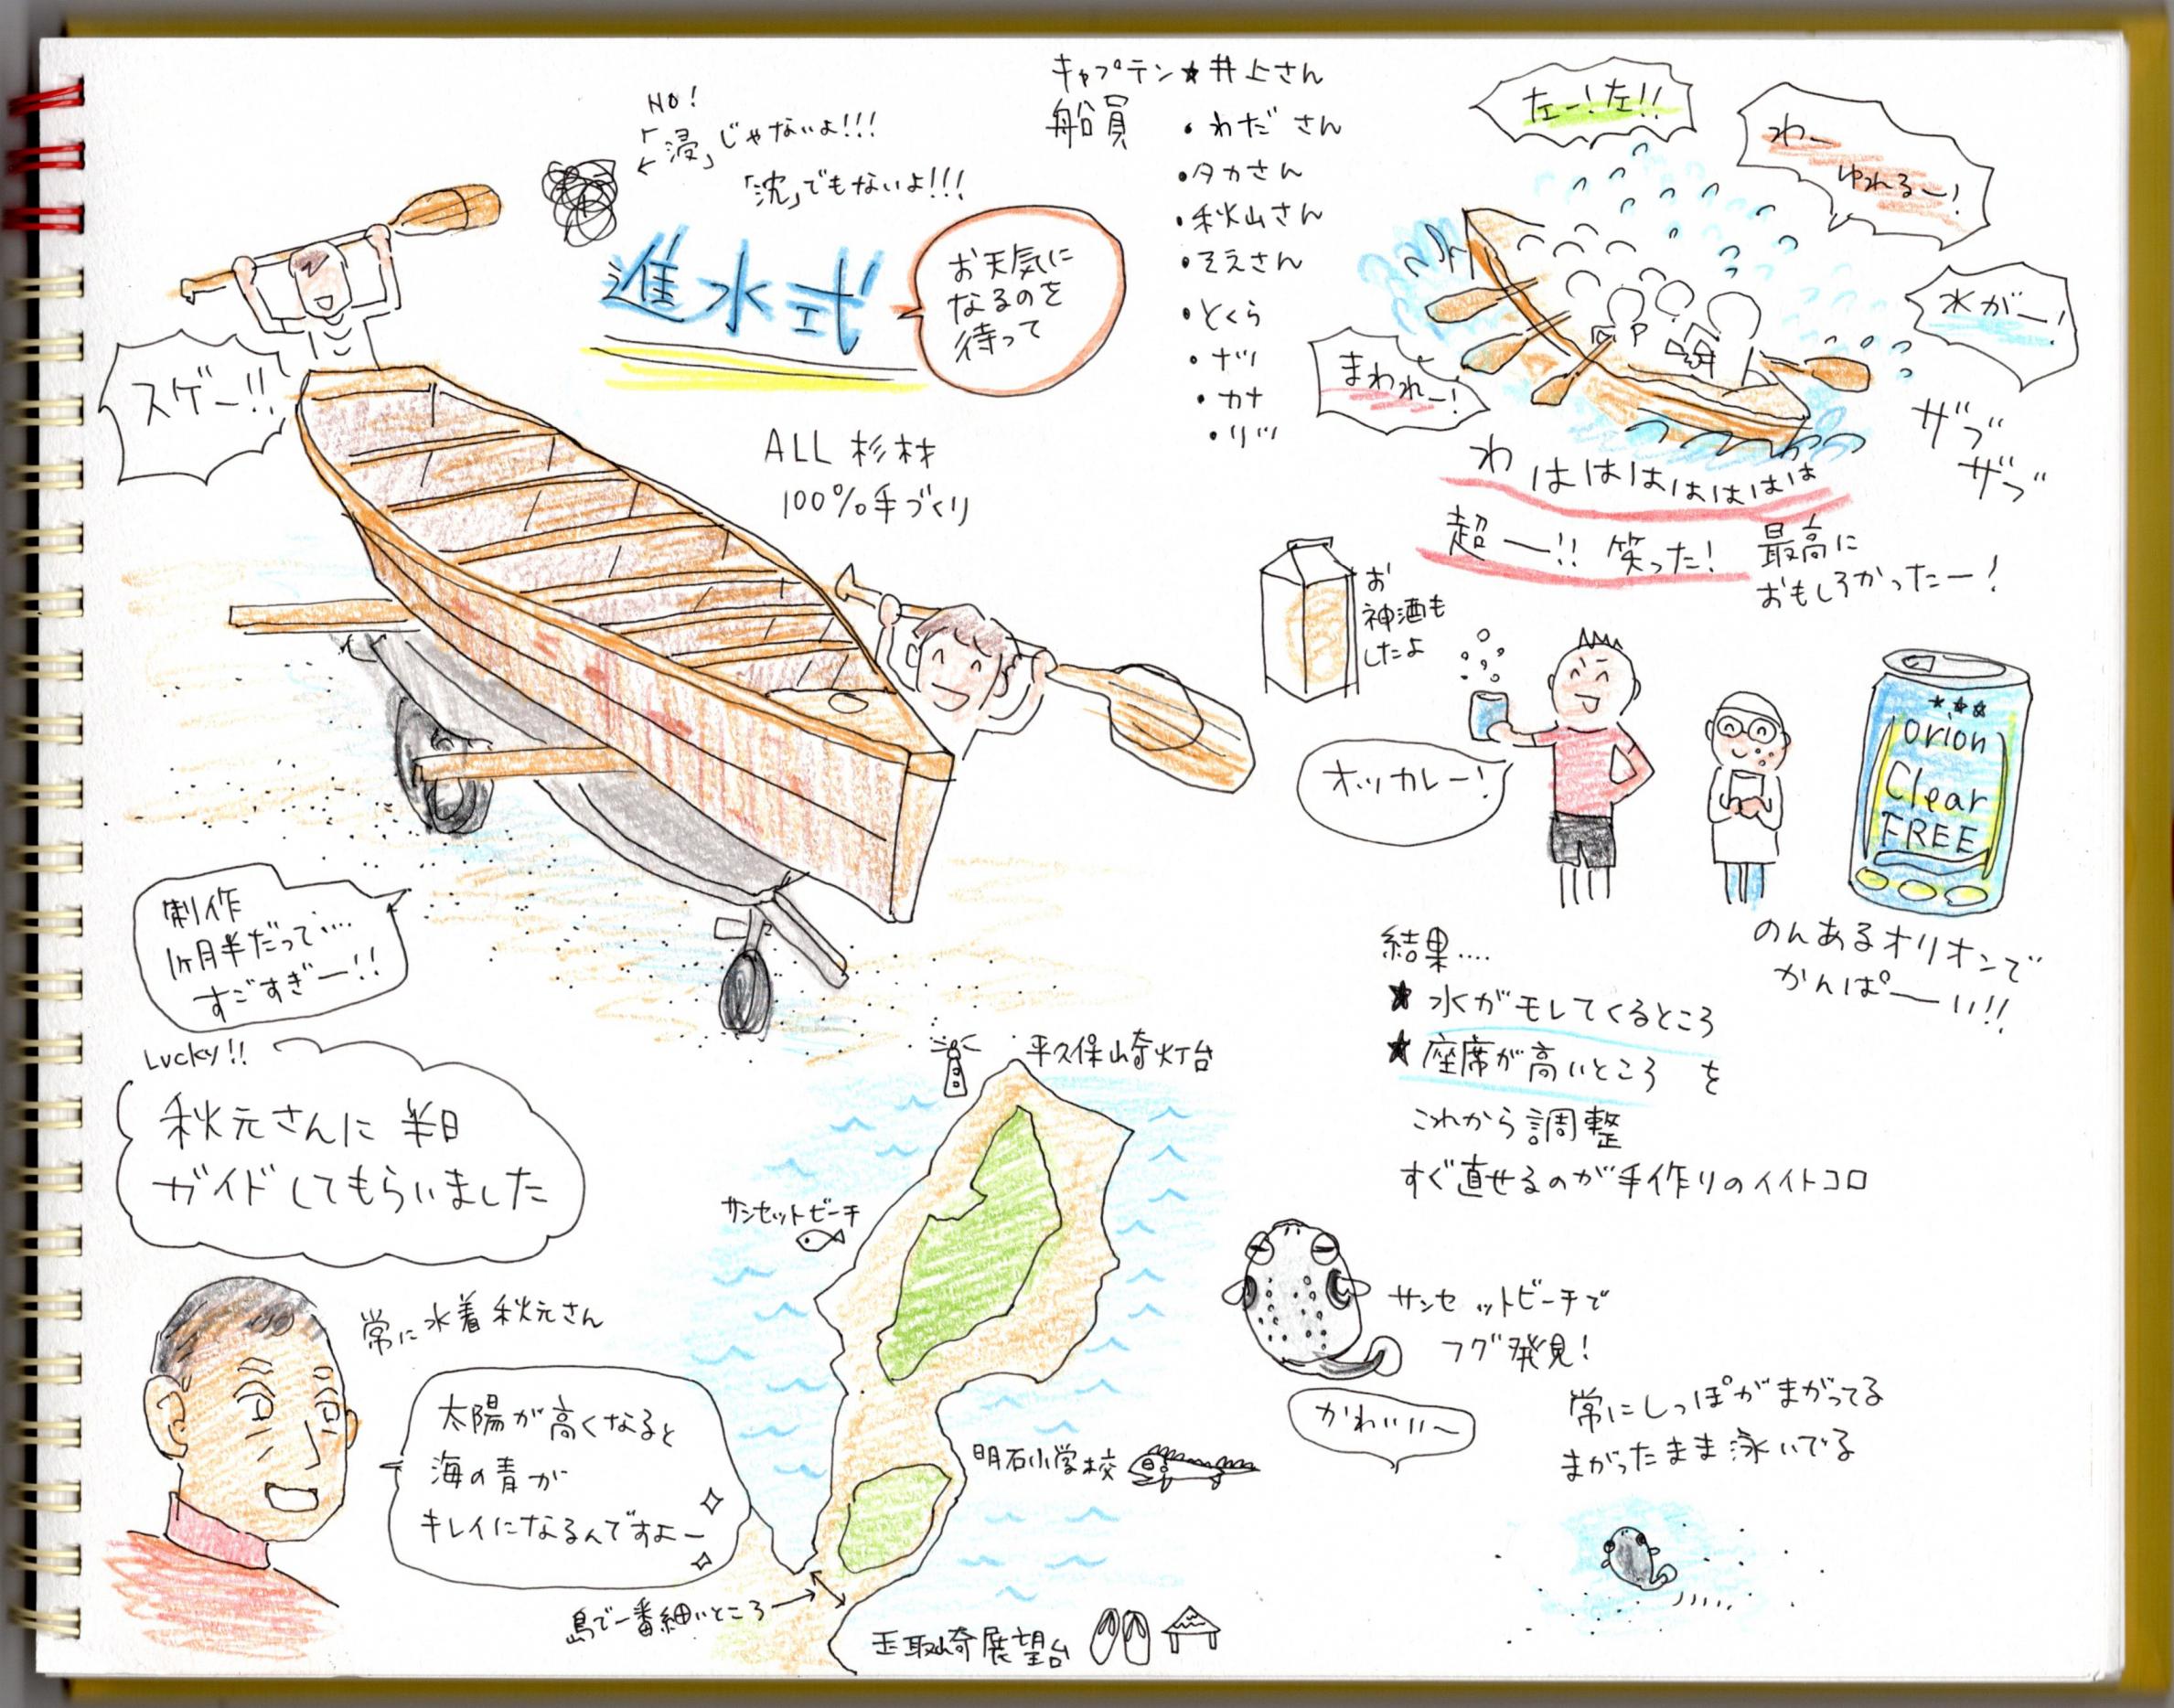 NO!
「浸」じゃないよ!!!
「沈」でもないよ!!!
進水式
お天気に
なるのを
待って
スゲー!!
ALL 杉材
100%手づくり
制作
1ヶ月半だって....
すごすぎー!!
キャプテン★井上さん
船員
・わださん
・タカさん
・秋山さん
・そえさん
・とくら
・ナツ
・カナ
・リツ
左ー!左!!
わー
ゆれるー!
水がー!
まわれー!
ザブ
ザブ
わはははははははは
超ー!! 笑った!
最高に
おもしろかったー!
お
神酒も
したよ
オッカレー!
orion
Clear
FREE
のんあるオリオンで
かんぱーい!!
結果....
★水がモレてくるところ
★座席が高いところ を
これから調整
すぐ直せるのが手作りのイイトコロ
Lucky!!
秋元さんに半日
ガイドしてもらいました
常に水着秋元さん
太陽が高くなると
海の青が
キレイになるんですよー
平久保崎灯台
サンセットビーチ
明石小学校
島で一番細いところ
玉取崎展望台
サンセットビーチで
フグ発見!
かわいいー
常にしっぽがまがってる
まがったまま泳いでる